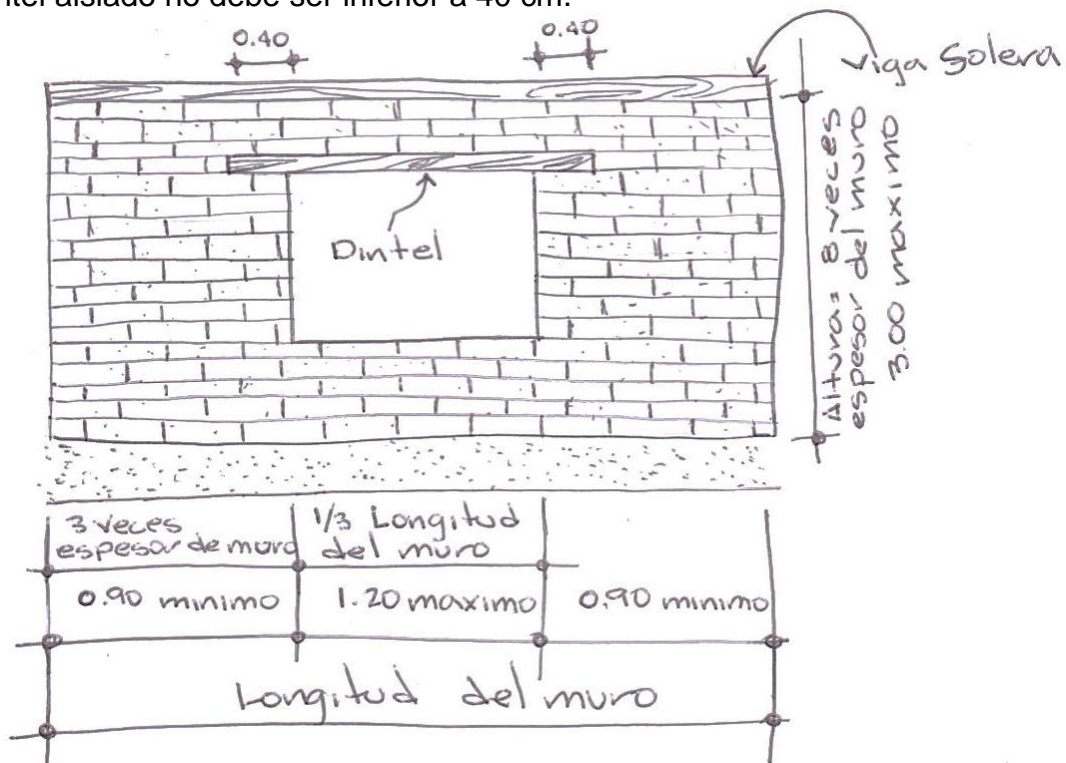 ntel aislado no debe ser inferior a 40 cm.
0.40
0.40
Viga Solera
Dintel
Altura= 8 veces
espesor del muro
3.00 maximo
3 veces
espesor de muro
1/3 Longitud
del muro
0.90 minimo
1.20 maximo
0.90 minimo
Longitud del muro